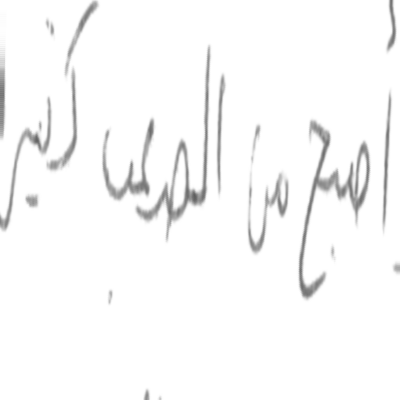 أصبح من الصعب كثيرا